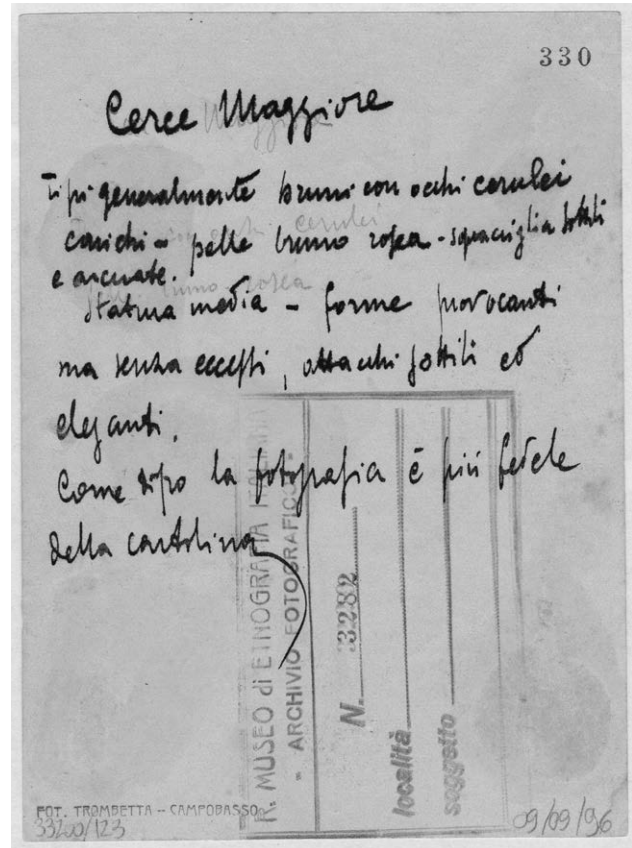 330
Cerce Maggiore
Maggiore
tipi generalmente bruni con occhi cerulei
carichi - pelle bruno rosea - sopracciglia sottili
con occhi cerulei
e arcuate.
bruno-rosea
Statura media - forme provocanti
ma senza eccessi, attacchi sottili ed
eleganti.
Come tipo la fotografia è più fedele
della cartolina
R. MUSEO di ETNOGRAFIA ITALIANA
- ARCHIVIO FOTOGRAFICO -
N. 3282
località
soggetto
FOT. TROMBETTA - CAMPOBASSO
33200/123
09/09/96